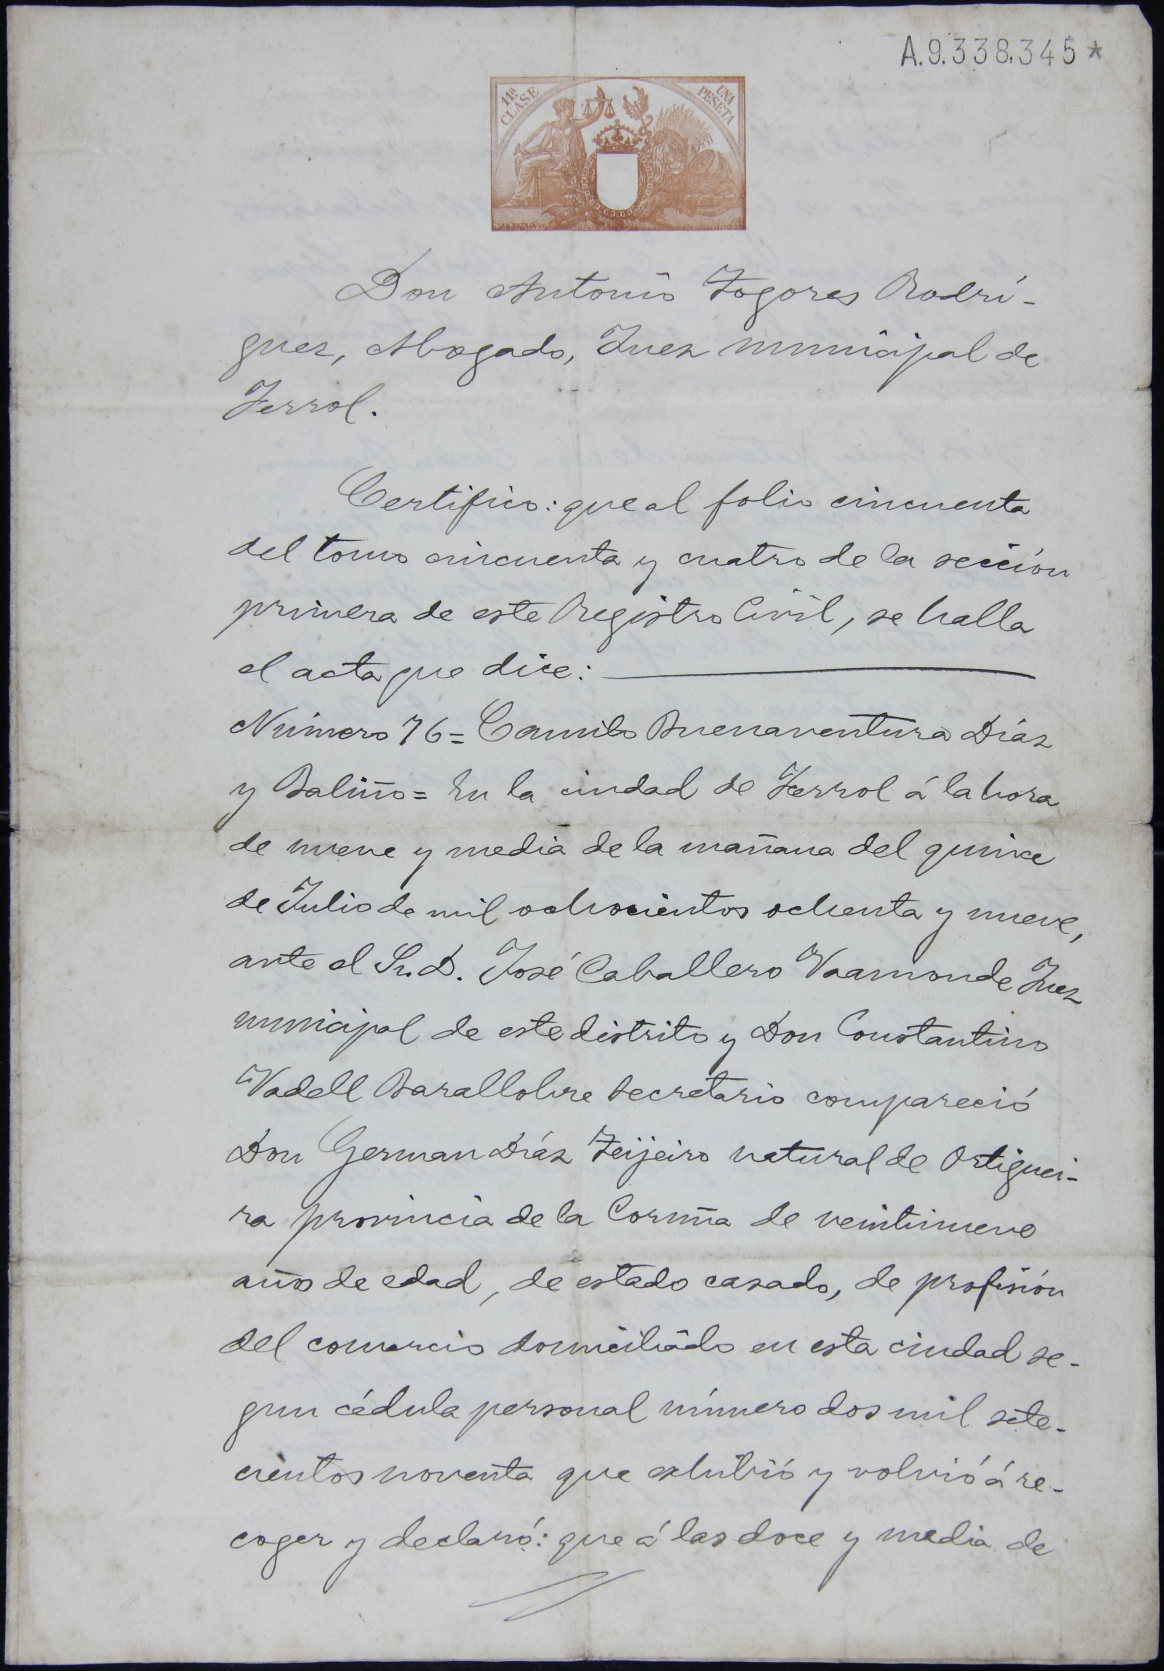 A.9.338,345*
11ª CLASE
UNA PESETA
Don Antonio Togores Rodrí-
guez, Abogado, Juez municipal de
Ferrol.
Certifico: que al folio cincuenta
del tomo cincuenta y cuatro de la sección
primera de este Registro Civil, se halla
el acta que dice:
Número 76= Camilo Buenaventura Díaz
y Baliño= En la ciudad de Ferrol á la hora
de nueve y media de la mañana del quince
de Julio de mil ochocientos ochenta y nueve,
ante el Sr. D. José Caballero Vaamonde Juez
municipal de este distrito y Don Constantino
Vadell Barallobre Secretario compareció
Don German Díaz Teijeiro natural de Ortiguei-
ra provincia de la Coruña de veintinueve
años de edad, de estado casado, de profisión
del comercio domiciliado en esta ciudad se-
gun cédula personal número dos mil sete-
cientos noventa que exhibió y volvió á re-
coger y declaró: que á las doce y media de